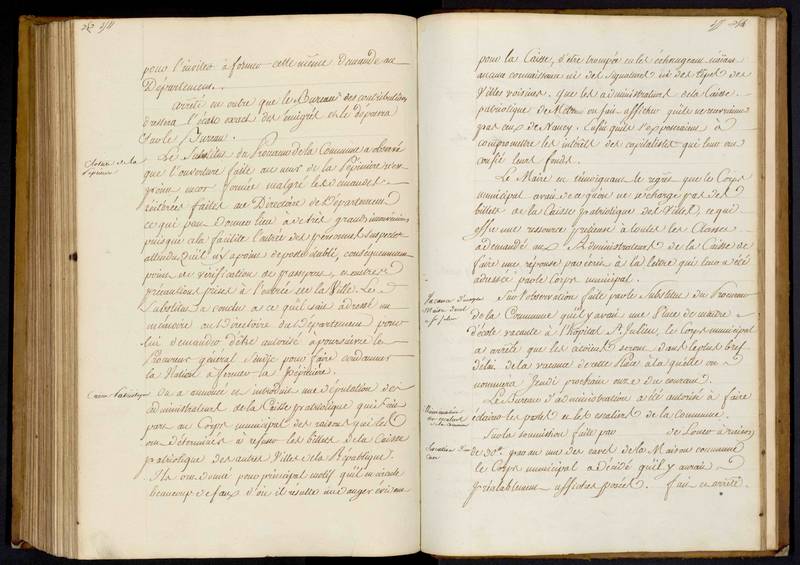 pour l'inviter à former cette même demande au
Département.
arrêté en outre que le Bureau des contributions
dressera l'état exact des émigrés et le déposera
sur le Bureau.
Cloture de la
Pépinière
Le Substitut du Procureur de la Commune a observé
que l'ouverture faite au mur de la Pépinière n'est
point encor fermée malgré les demandes
réitérées faites au Directoire de Département
ce qui peut donner lieu à de très grands inconvéniens
puisque cela facilite l'entrée des personnes suspectes
attendu qu'il n'y a point de poste établi, conséquemment
point de vérification de passeports, et autres
précautions prises à l'entrée de la Ville. Le
Substitut a conclu a ce qu'il soit adressé un
mémoire au Directoire du Département pour
lui demander d'être autorisé a poursuivre le
Procureur général Sindic pour faire condamner
la Nation à fermer la Pépinière.
Caisse Patriotique
On a annoncé et introduit une députation des
administrateurs de la Caisse patriotique qui font
part au Corps municipal des raisons qui les
ont déterminés à refuser les billets de la Caisse
patriotique des autres Villes de la République.
Ils ont donné pour principal motif qu'il en circule
beaucoup de faux d'où il résulte un danger évident
pour la Caisse, d'être trompée en les échangeant n'ayant
aucune connoissance ni des signatures ni des types des
Villes voisines, que les administrateurs de la Caisse
patriotique de Metz ont fait afficher qu'ils ne recevroient
pas ceux de Nancy. Enfin qu'ils s'exposeroient à
compromettre les intérêts des capitalistes qui leur ont
confié leurs fonds.
Le Maire en témoignant le regret que le Corps
municipal avait de ce qu'on ne se charge pas des
billets de la Caisse patriotique des Villes, ce qui
offre une ressource précieuse à toutes les Classes
a demandé aux Administrateurs de la Caisse de
faire une réponse par écrit à la lettre qui leur a été
adressée par le Corps municipal.
Vacance d'une place
Maitre d'école
St Julien
Sur l'observation faite par le Substitut du Procureur
de la Commune qu'il y avait une Place de maitre
d'école vacante à l'hôpital St Julien, le Corps municipal
a arrêté que les citoyens seront dans le plus bref
délai de la vacance de cette Place à laquelle on
nommera Jeudi prochain onze du courant.
de la commune
Le Bureau d'administration a été autorisé à faire
éclairer les portes et les escaliers de la Commune.
Location d'une
Cave
Sur la soumission faite par de Louer à raison
de 30# par an une des caves de la Maison commune
le Corps municipal a décidé qu'il y auroit
préalablement affiches posées. fait et arrêté